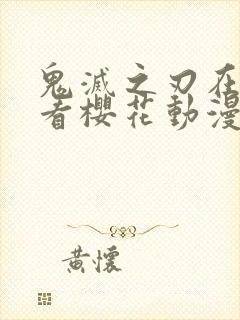 鬼滅之刃在
者櫻花動漫
黃懷